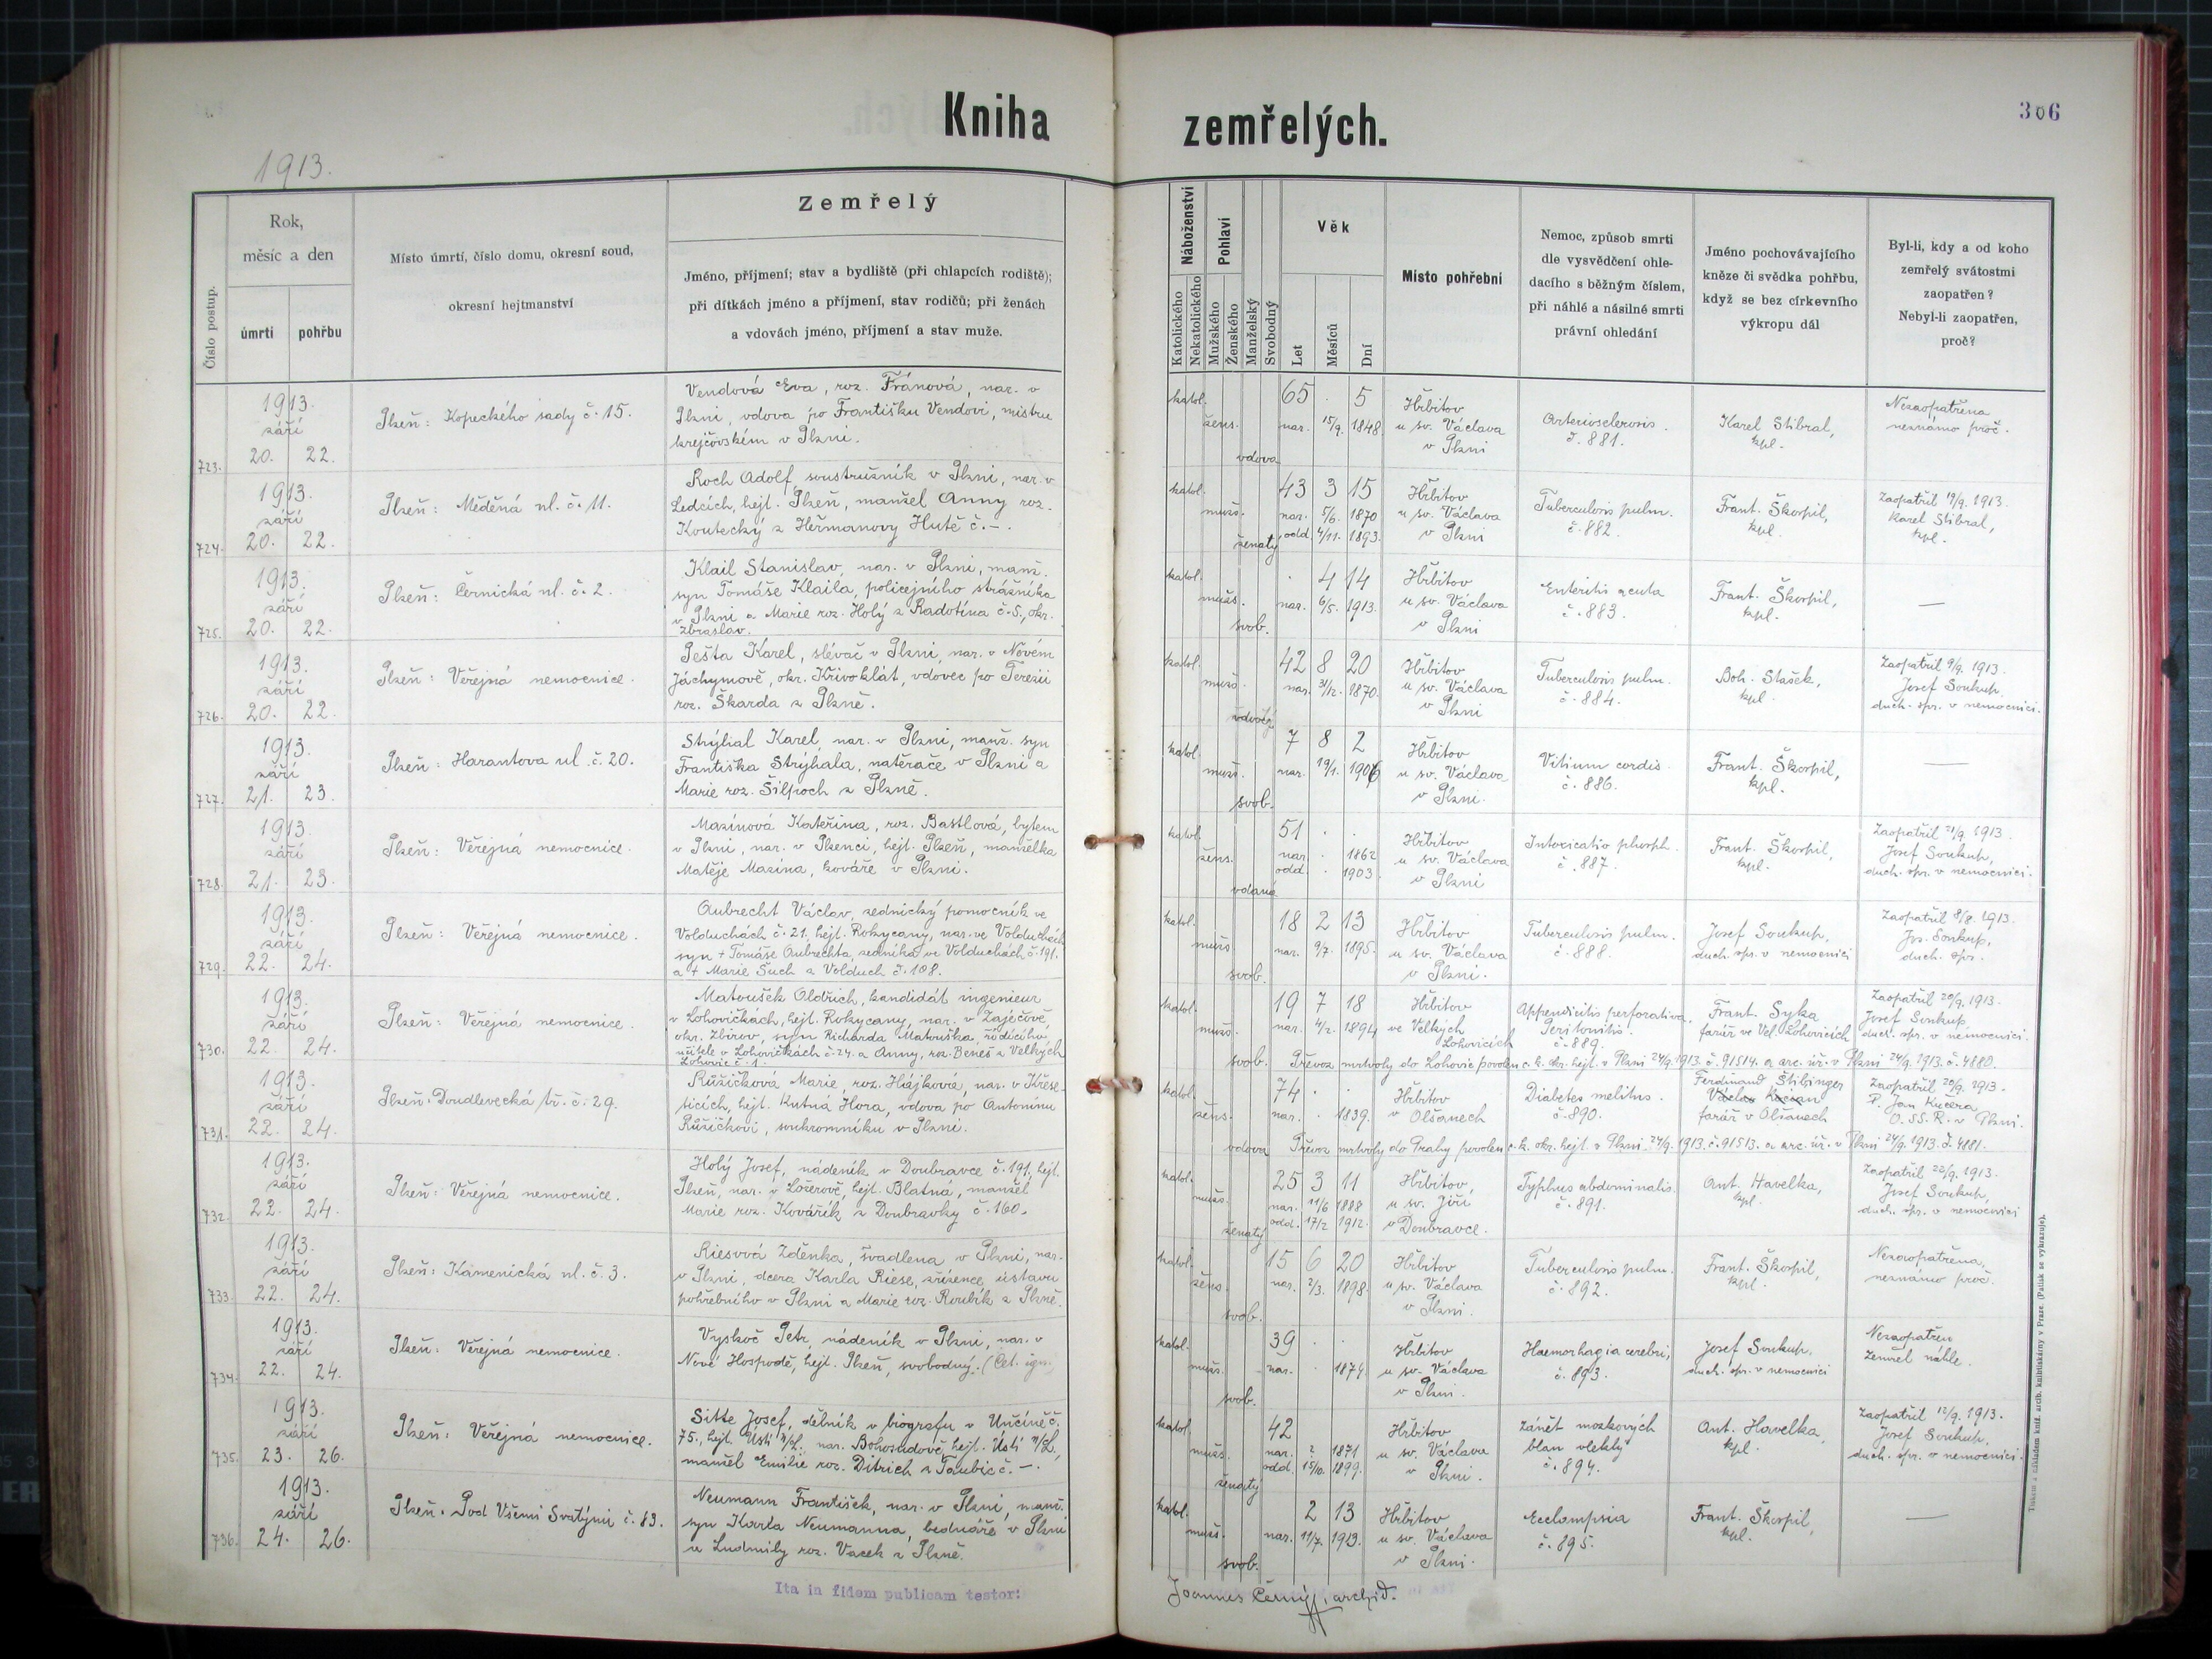 Kniha zemřelých.
306
1913.
Číslo postup.
Rok,
měsíc a den
úmrtí
pohřbu
Místo úmrtí, číslo domu, okresní soud,
okresní hejtmanství
Zemřelý
Jméno, příjmení; stav a bydliště (při chlapcích rodiště);
při dítkách jméno a příjmení, stav rodičů; při ženách
a vdovách jméno, příjmení a stav muže.
Náboženství
Katolického
Nekatolického
Pohlaví
Mužského
Ženského
Manželský
Svobodný
Věk
Let
Měsíců
Dní
Místo pohřební
Nemoc, způsob smrti
dle vysvědčení ohle-
dacího s běžným číslem,
při náhlé a násilné smrti
právní ohledání
Jméno pochovávajícího
kněze či svědka pohřbu,
když se bez církevního
výkropu dál
Byl-li, kdy a od koho
zemřelý svátostmi
zaopatřen?
Nebyl-li zaopatřen,
proč?
723.
1913.
září
20. 22.
Plzeň: Kopeckého sady č. 15.
Vendová Eva, roz. Fránová, nar. v
Plzni, vdova po Františku Vendovi, mistru
krejčovském v Plzni.
katol.
žens.
vdova
65 . 5
nar. 15/9. 1848.
Hřbitov
u sv. Václava
v Plzni
Arteriosclerosis.
č. 881.
Karel Stibral,
kpl.
Nezaopatřena
neznámo proč.
724.
1913.
září
20. 22.
Plzeň: Měděná ul. č. 11.
Roch Adolf, soustružník v Plzni, nar. v
Ledcích, hejt. Plzeň, manžel Anny roz.
Koutecký z Heřmanovy Hutě č. -.
katol.
mužs.
ženatý
43 3 15
nar. 5/6. 1870
odd. 4/11. 1893.
Hřbitov
u sv. Václava
v Plzni
Tuberculosis pulm.
č. 882.
Frant. Škorpil,
kpl.
Zaopatřil 19/9. 1913.
Karel Stibral,
kpl.
725.
1913.
září
20. 22.
Plzeň: Černická ul. č. 2.
Klail Stanislav, nar. v Plzni, manž.
syn Tomáše Klaila, policejního strážníka
v Plzni a Marie roz. Holý z Radotína č. 5., okr.
Zbraslav.
katol.
mužs.
svob.
. 4 14
nar. 6/5. 1913.
Hřbitov
u sv. Václava
v Plzni
Enteritis acuta
č. 883.
Frant. Škorpil,
kpl.
—
726.
1913.
září
20. 22.
Plzeň: Veřejná nemocnice.
Pešta Karel, slévač v Plzni, nar. v Novém
Jáchymově, okr. Křivoklát, vdovec po Terezii
roz. Škarda z Plzně.
katol.
mužs.
42 8 20
nar. 31/12. 1870.
Hřbitov
u sv. Václava
v Plzni
Tuberculosis pulm.
č. 884.
Boh. Stašek,
kpl.
Zaopatřil 9/9. 1913.
Josef Soukup,
duch. spr. v nemocnici.
727.
1913.
září
21. 23.
Plzeň: Harantova ul. č. 20.
Strýhal Karel, nar. v Plzni, manž. syn
Františka Strýhala, natěrače v Plzni a
Marie roz. Šilpoch z Plzně.
katol.
mužs.
svob.
7 8 2
nar. 19/1. 1906
Hřbitov
u sv. Václava
v Plzni.
Vitium cordis.
č. 886.
Frant. Škorpil,
kpl.
—
728.
1913.
září
21. 23.
Plzeň: Veřejná nemocnice.
Mazínová Kateřina, roz. Bastlová, bytem
v Plzni, nar. v Plzenci, hejt. Plzeň, manželka
Matěje Mazína, kováře v Plzni.
katol.
žens.
vdaná
51 . .
nar. . 1862
odd. . 1903.
Hřbitov
u sv. Václava
v Plzni
Intoxicatio phosph.
č. 887.
Frant. Škorpil,
kpl.
Zaopatřil 21/9. 1913.
Josef Soukup,
duch. spr. v nemocnici.
729.
1913.
září
22. 24.
Plzeň: Veřejná nemocnice.
Aubrecht Václav, zednický pomocník ve
Volduchách č. 21. hejt. Rokycany, nar. ve Volduchách
syn + Tomáše Aubrechta, zedníka ve Volduchách č. 191.
a + Marie Šuch z Volduch č. 108.
katol.
mužs.
svob.
18 2 13
nar. 9/7. 1895.
Hřbitov
u sv. Václava
v Plzni.
Tuberculosis pulm.
č. 888.
Josef Soukup,
duch. spr. v nemocnici
Zaopatřil 8/8. 1913.
Jos. Soukup,
duch. spr.
730.
1913.
září
22. 24.
Plzeň: Veřejná nemocnice.
Matoušek Oldřich, kandidát ingenieur
v Lohovičkách, hejt. Rokycany, nar. v Zaječově,
okr. Zbirov, syn Richarda Matouška, řídícího
učitele v Lohovičkách č. 24. a Anny, roz. Beneš z Velkých
Lohovic č. 1.
katol.
mužs.
svob.
19 7 18
nar. 4/2. 1894
Hřbitov
ve Velkých
Lohovicích
Appendicitis perforativa.
Peritonitis.
č. 889.
Frant. Syka
farář ve Vel. Lohovicích
Zaopatřil 20/9. 1913.
Josef Soukup,
duch. spr. v nemocnici.
Převoz mrtvoly do Lohovic povolen c. k. okr. hejt. v Plzni 24/9. 1913. č. 91514. a arc. úř. v Plzni 24/9. 1913. č. 4880.
731.
1913.
září
22. 24.
Plzeň: Doudlevecká tř. č. 29.
Růžičková Marie, roz. Hájková, nar. v Křese-
ticích, hejt. Kutná Hora, vdova po Antonínu
Růžičkovi, soukromníku v Plzni.
katol.
žens.
vdova
74 . .
nar. . 1839.
Hřbitov
v Olšanech
Diabetes melitus.
č. 890.
Ferdinand Štibinger
farář v Olšanech
Zaopatřil 20/9. 1913.
P. Jan Kučera
O. SS. R. v Plzni.
Převoz mrtvoly do Prahy povolen c. k. okr. hejt. v Plzni 24/9. 1913. č. 91513. a arc. úř. v Plzni 24/9. 1913. č. 4881.
732.
1913.
září
22. 24.
Plzeň: Veřejná nemocnice.
Holý Josef, nádeník v Doubravce č. 191. hejt.
Plzeň, nar. v Lošerově, hejt. Blatná, manžel
Marie roz. Kovářík z Doubravky č. 160.
katol.
mužs.
ženatý
25 3 11
nar. 11/6 1888
odd. 17/2 1912.
Hřbitov
u sv. Jiří
v Doubravce.
Typhus abdominalis.
č. 891.
Ant. Havelka,
kpl.
Zaopatřil 22/9. 1913.
Josef Soukup,
duch. spr. v nemocnici
733.
1913.
září
22. 24.
Plzeň: Kamenická ul. č. 3.
Riesová Zdeňka, švadlena v Plzni, nar.
v Plzni, dcera Karla Riese, zřízence ústavu
pohřebního v Plzni a Marie roz. Roubík z Plzně.
katol.
žens.
svob.
15 6 20
nar. 2/3. 1898.
Hřbitov
u sv. Václava
v Plzni.
Tuberculosis pulm.
č. 892.
Frant. Škorpil,
kpl.
Nezaopatřena,
neznámo proč.
734.
1913.
září
22. 24.
Plzeň: Veřejná nemocnice.
Vyskoč Petr, nádeník v Plzni, nar. v
Nové Hospodě, hejt. Plzeň, svobodný.
katol.
mužs.
svob.
39 . .
nar. . 1874.
Hřbitov
u sv. Václava
v Plzni.
Haemorhagia cerebri,
č. 893.
Josef Soukup,
duch. spr. v nemocnici
Nezaopatřen
Zemřel náhle.
735.
1913.
září
23. 26.
Plzeň: Veřejná nemocnice.
Sitte Josef, dělník v biografu v Unčíně č.
75., hejt. Ústí n/L., nar. Bohosudově, hejt. Ústí n/L.,
manžel Emilie roz. Ditrich z Taubic č. -.
katol.
mužs.
ženatý
42
nar. ? 1871
odd. 15/10. 1899.
Hřbitov
u sv. Václava
v Plzni.
Zánět mozkových
blan vleklý
č. 894.
Ant. Havelka,
kpl.
Zaopatřil 12/9. 1913.
Josef Soukup,
duch. spr. v nemocnici.
736.
1913.
září
24. 26.
Plzeň: Pod Všemi Svatými č. 83.
Neumann František, nar. v Plzni, manž.
syn Karla Neumanna, bednáře v Plzni
a Ludmily roz. Vacek z Plzně.
katol.
mužs.
svob.
2 13
nar. 11/7. 1913.
Hřbitov
u sv. Václava
v Plzni.
Ecclampsia
č. 895.
Frant. Škorpil,
kpl.
—
Ita in fidem publicam testor:
Joannes Černý, archid.